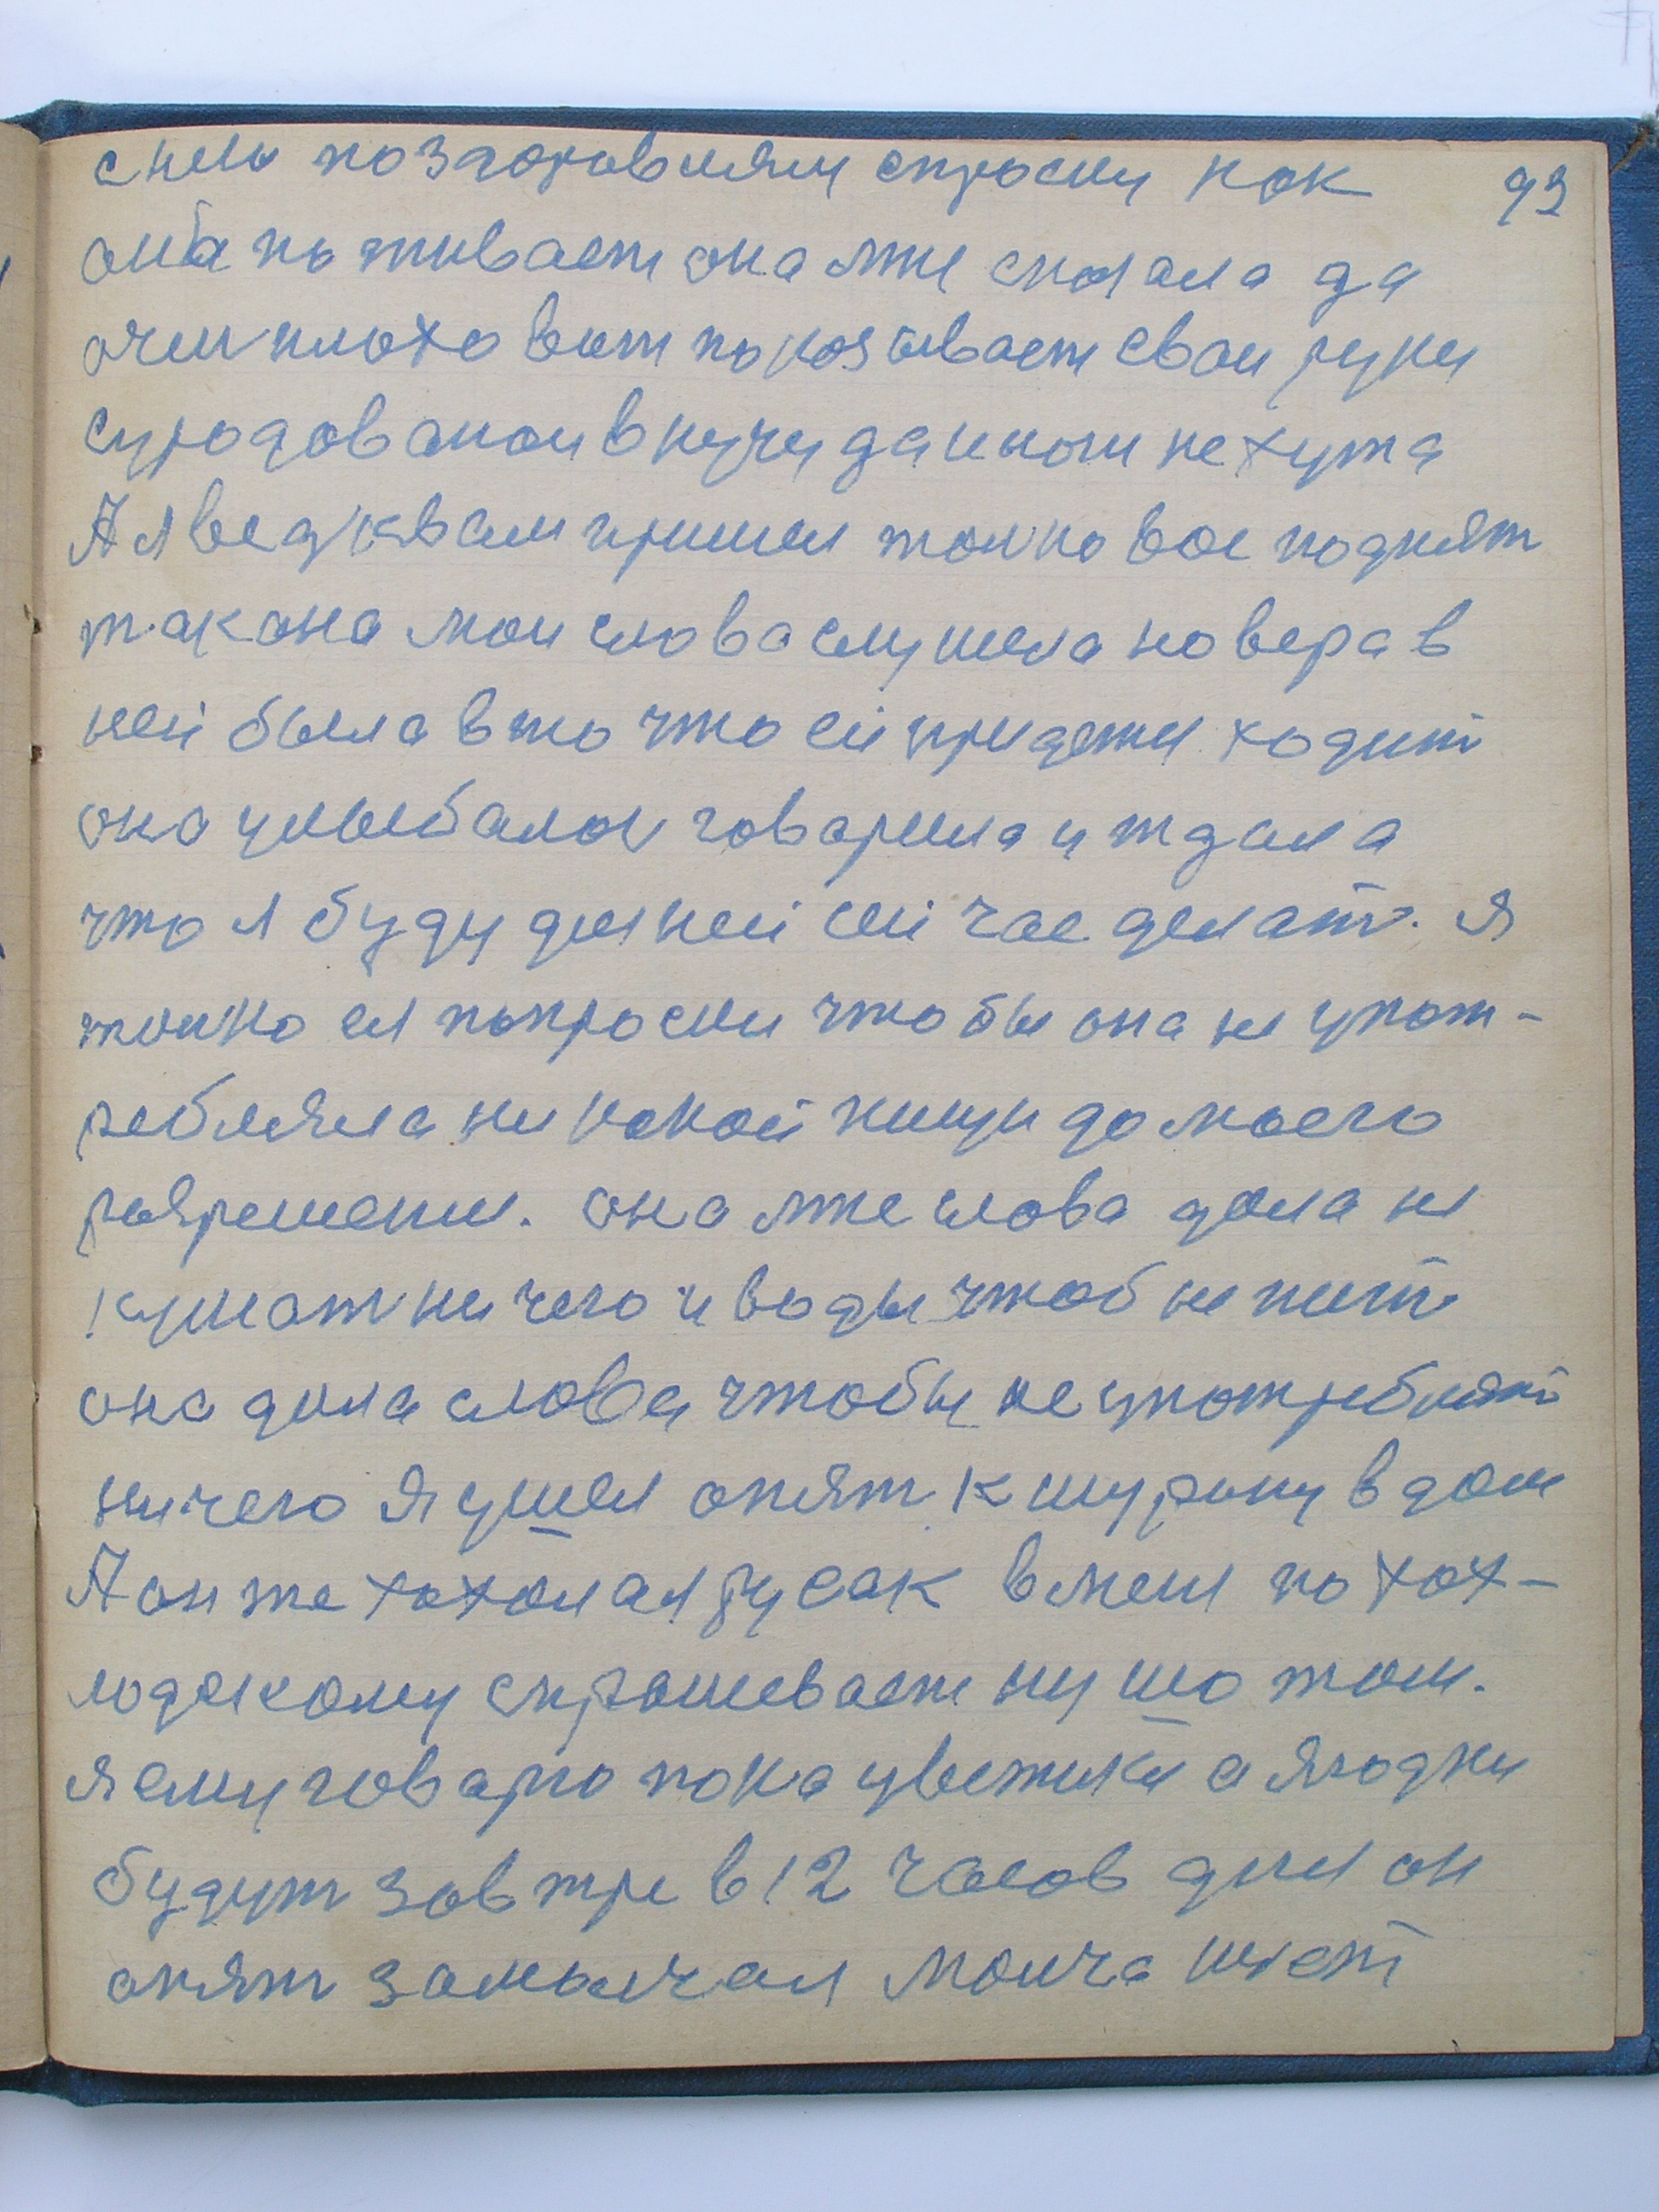 с нею поздоровлялся спросил как 93
она поживает она мне сказала да
очен плохо вот показывает свои руки
суродованои в кучу да и ноги не хужа
А я вед к вам пришел толко вас поднят
так она мои слова слушела но вера в
ней была в то что ей придется ходит
она улыбалос говарила и ждала
что я буду для ней сейчас делат. я
толко ея попросил чтобы она не упот-
ребляла ни какой пищи до моего
разрешения. она мне слова дала не
кушат ни чего и воды чтоб не пит
она дала слова чтобы не употреблят
ничего Я ушел опят к шурину в дом
А он же хохол а я русак в меня по хох-
лодскому спрашевает ну шо там.
я ему говарю пока цветики а ягодки
будут завтре в 12 часов дня он
опят замычал молча идет